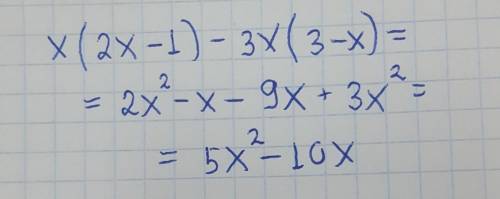 x(2x-1)-3x(3-x)=
=2x²-x-9x+3x²=
=5x²-10x